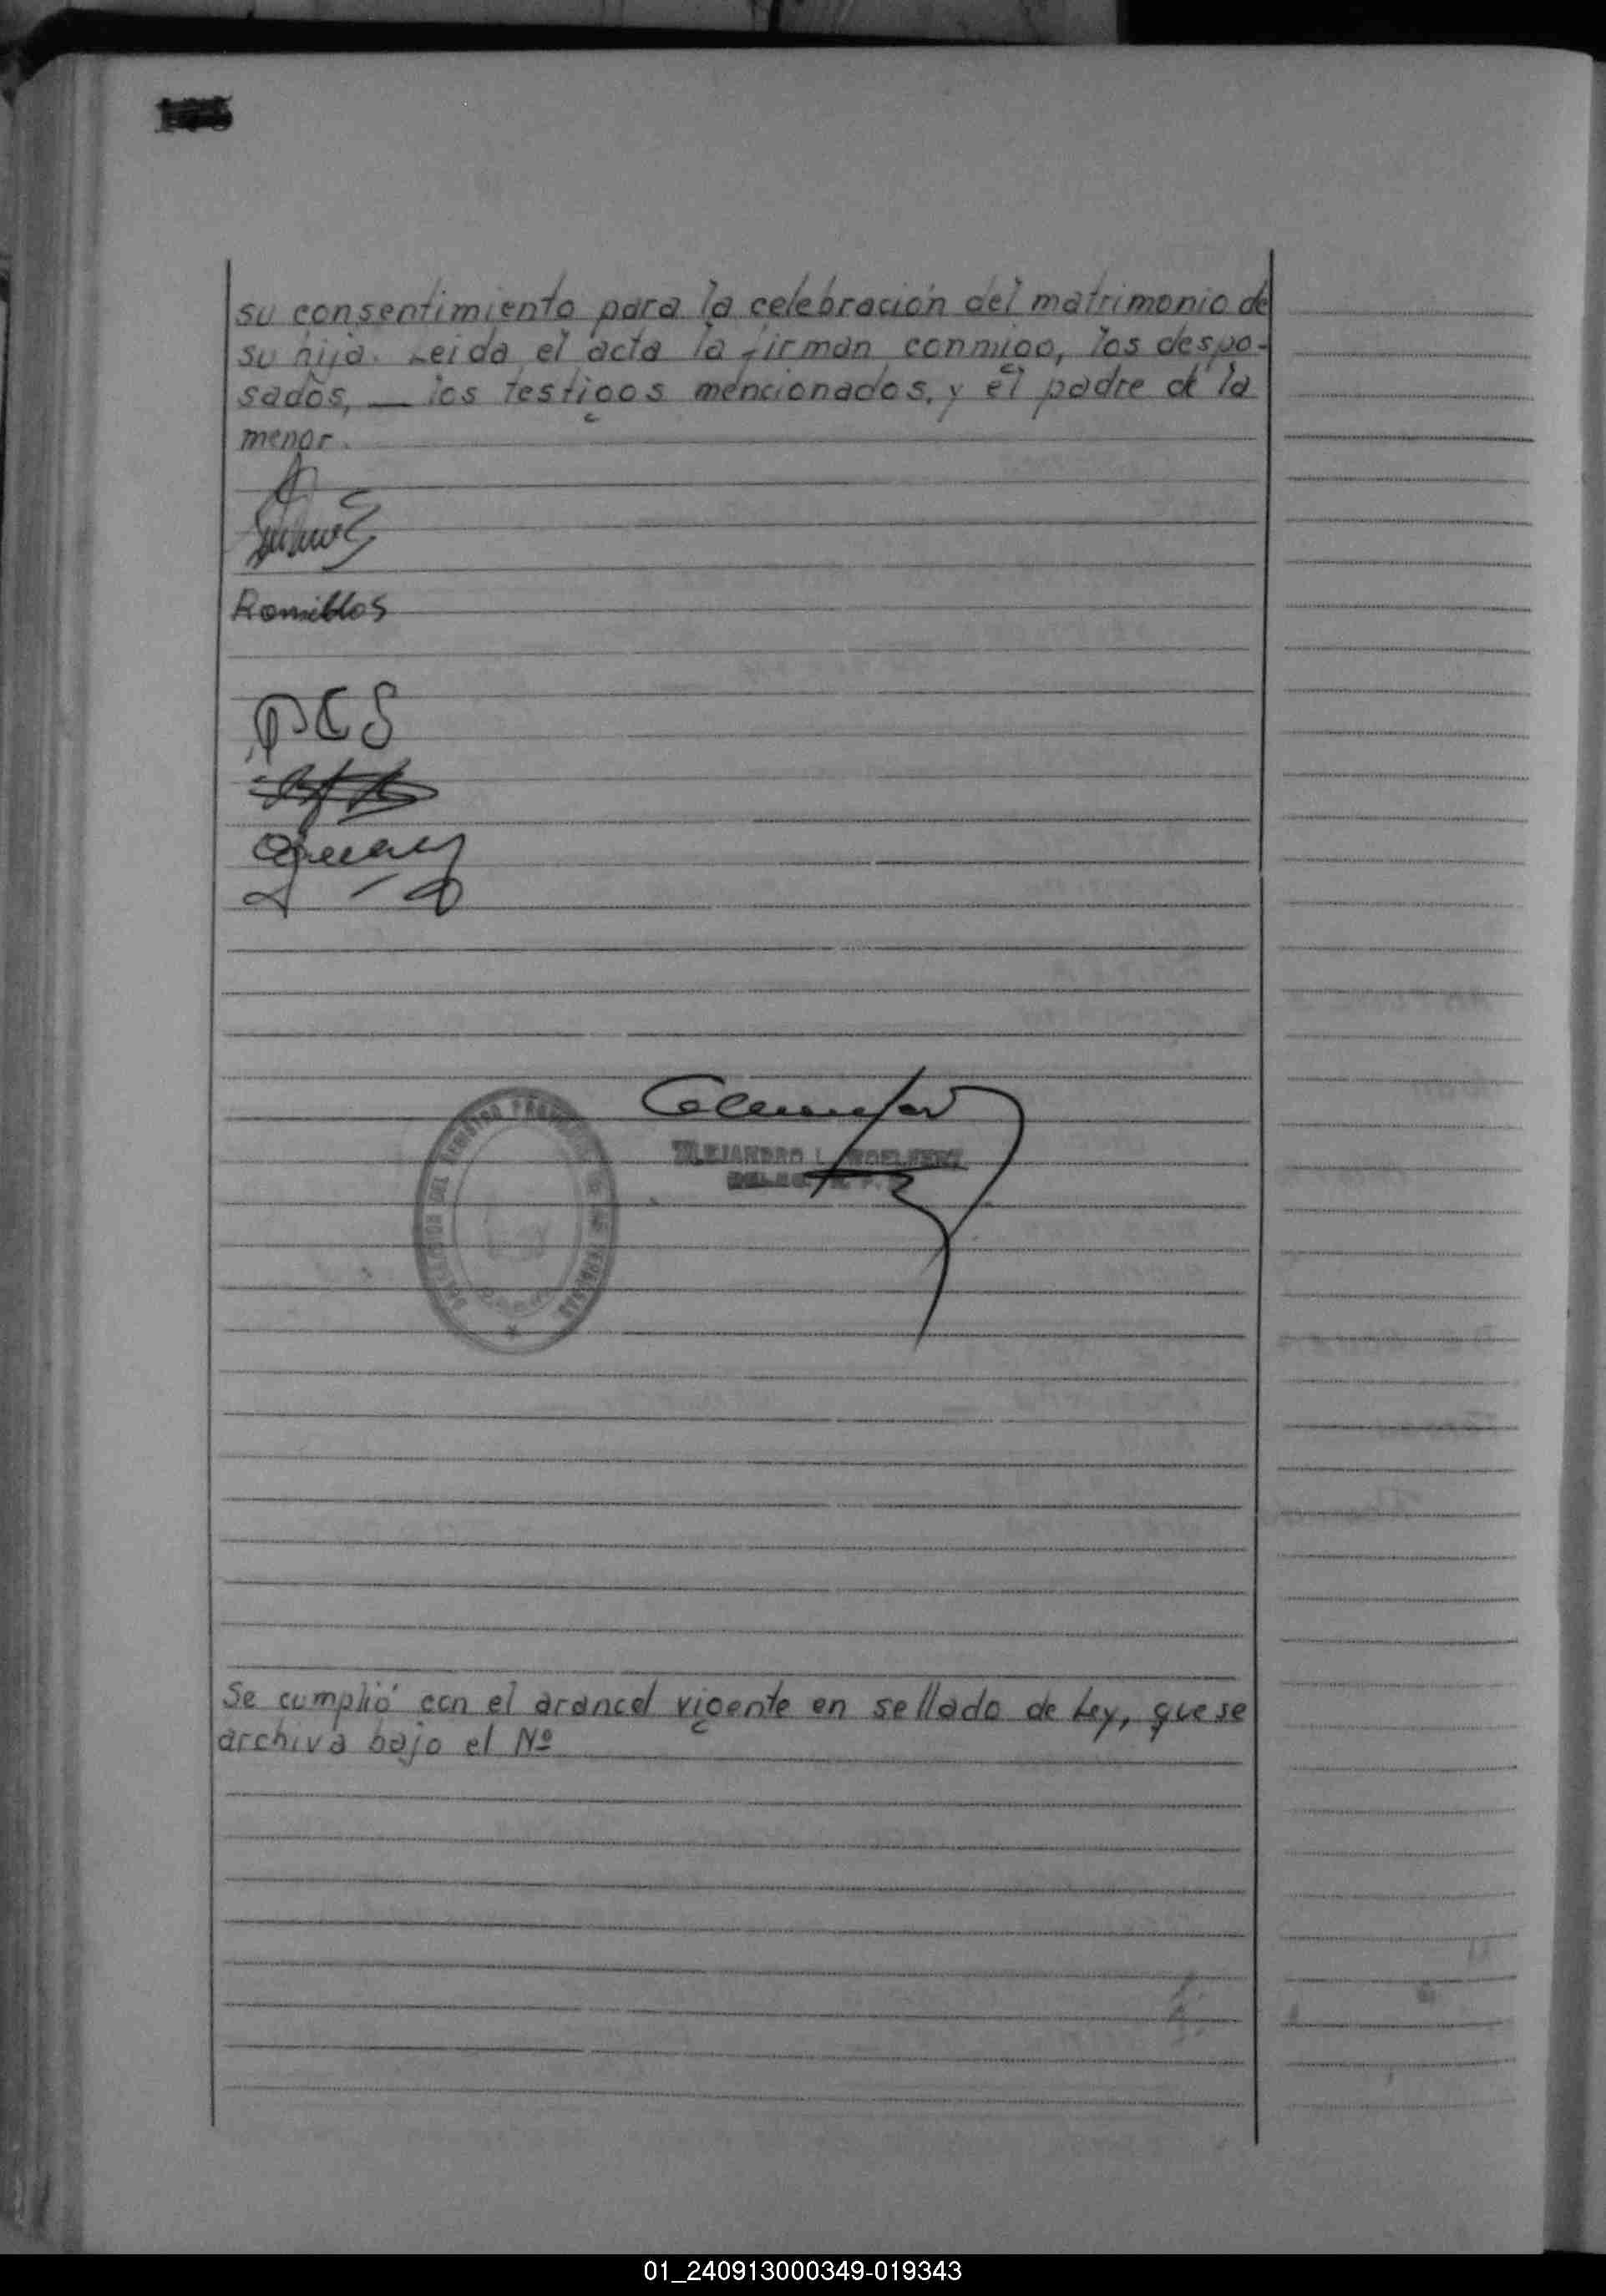 su consentimiento para la celebración del matrimonio de
su hija. Leida el acta la firman conmigo, los despo-
sados, — los testigos mencionados, y el padre de la
menor.
Romillos
PCS
ALEJANDRO L.
DEL REGISTRO PROVINCIAL DE LAS PERSONAS
Se cumplió con el arancel vigente en sellado de Ley, que se
archiva bajo el Nº
01_240913000349-019343